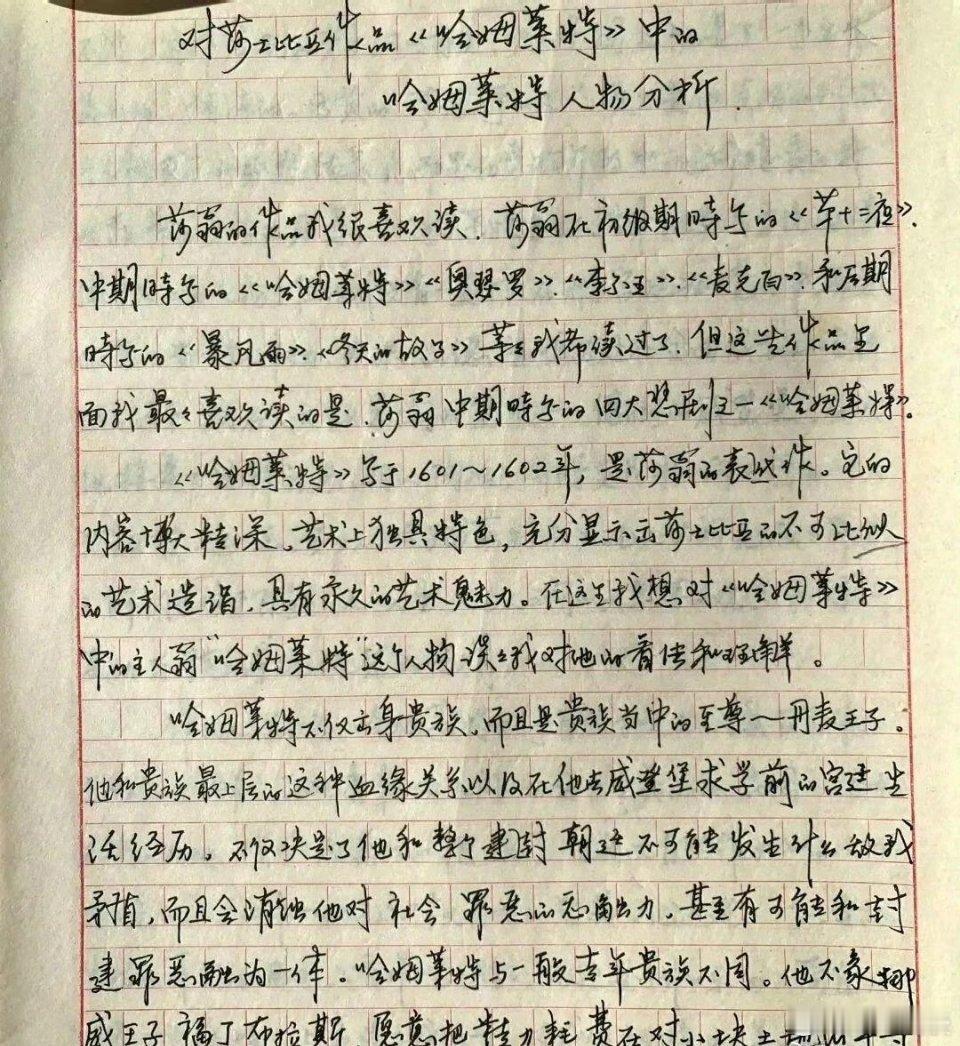 对莎士比亚作品《哈姆莱特》中的
哈姆莱特人物分析.
莎翁的作品我很喜欢读.莎翁在初级期時写的《第十二夜》.
中期時写的《哈姆莱特》《奥瑟罗》.《李尔王》.《麦克白》.和后期
時写的《暴风雨》.《冬天的故事》等.我都读过了.但这些作品里
面我最最喜欢读的是.莎翁中期時写的四大悲剧之一《哈姆莱特》.
《哈姆莱特》写于1601～1602年,是莎翁的表代作。它的
内容博大精深.艺术上独具特色,充分显示出莎士比亚的不可比似
的艺术造诣.具有永久的艺术魅力。在这里我想对《哈姆莱特》
中的主人翁"哈姆莱特"这个人物谈谈我对他的看法和理解。
哈姆莱特不仅出身贵族.而且是贵族当中的至尊—丹麦王子。
他和贵族最上层的这种血缘关系以及在他去威登堡求学前的宫廷生
活经历。不仅决定了他和整个建封朝廷不可能发生什么敌我
矛盾,而且会消蚀他对社会罪恶的 力.甚至有可能和封
建罪恶融为一体。哈姆莱特与一般青年贵族不同。他不象挪
威王子福丁布拉斯.愿意把精力耗费在对小块土